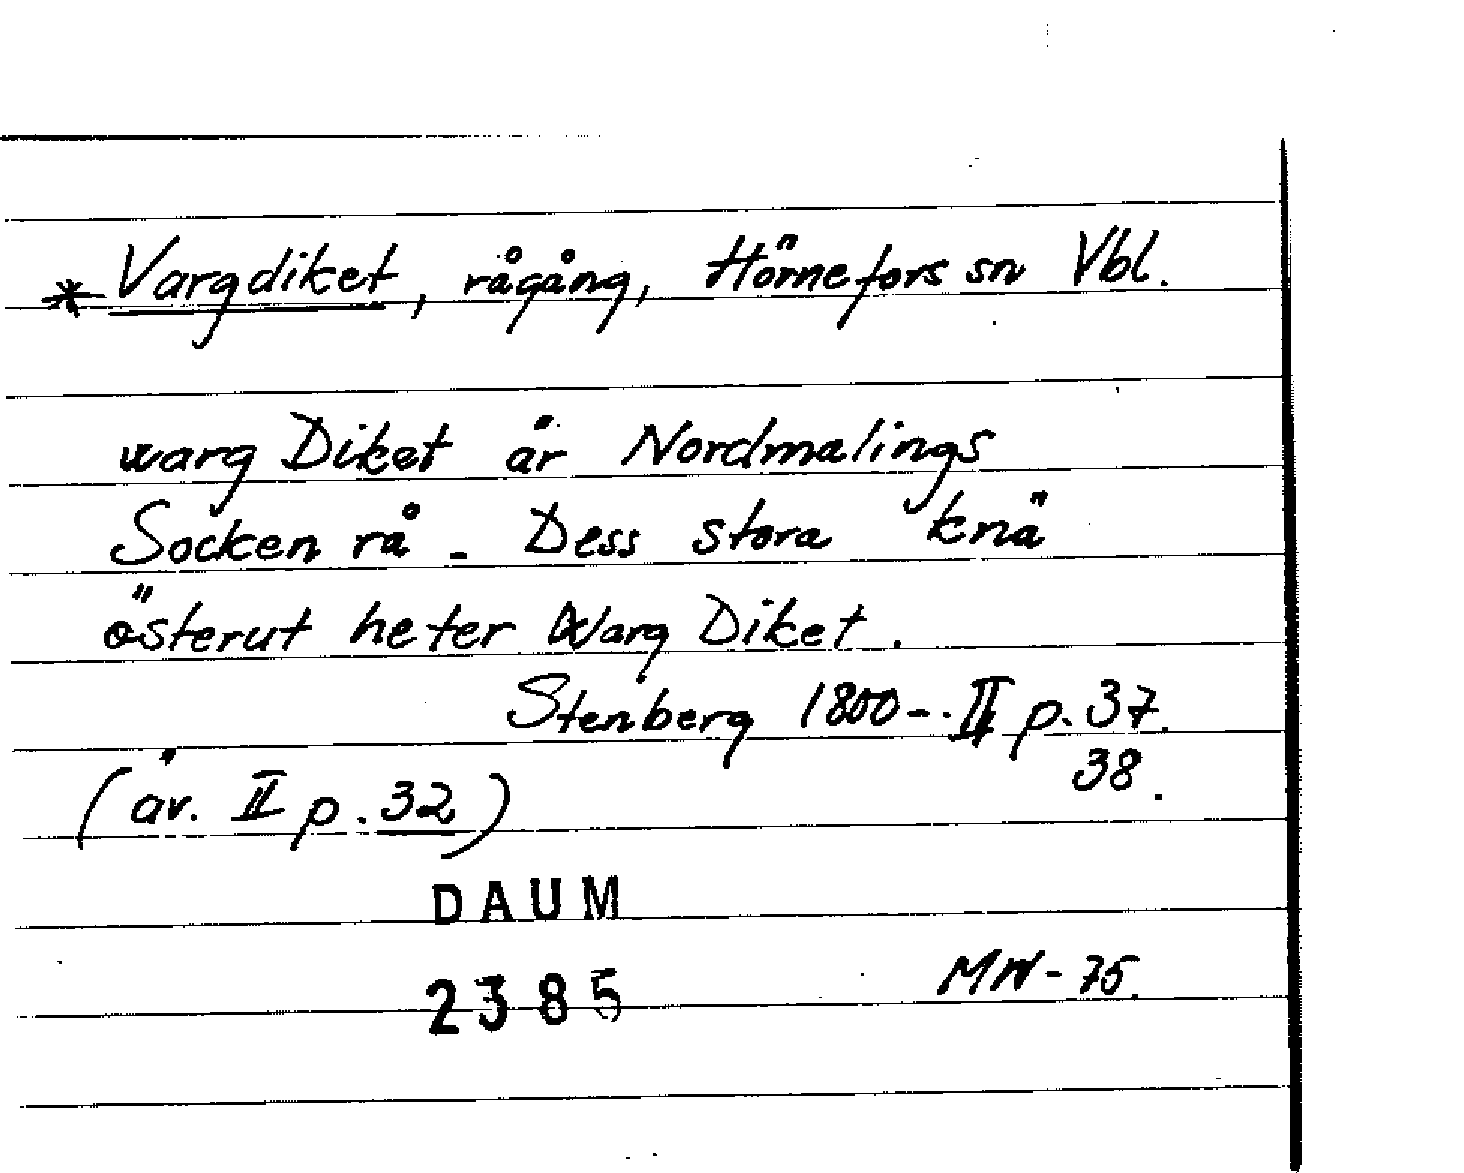 * Vargdiket, rågång, Hörnefors sn Vbl.
warg Diket är Nordmalings
Socken rå - Dess stora knä
österut heter Warg Diket.
Stenberg 1800-. II p. 37.
38.
(äv. II p. 32)
DAUM
2385
MW-75.